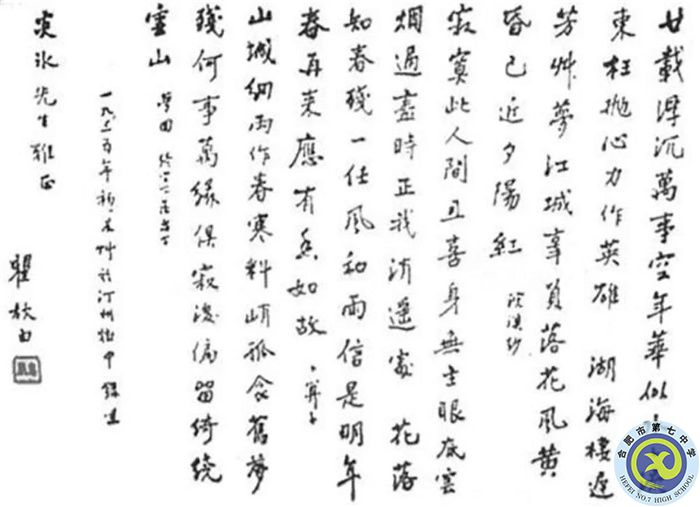 廿載浮沉萬事空年華似
東枉拋心力作英雄 湖海棲遲
芳艸夢江城辜負落花風黃
昏已近夕陽紅 浣溪紗
寂寞此人間且喜身無主眼底雲
烟過盡時正我逍遙處 花落
知春殘一任風和雨信是明年
春再來應有香如故 卜算子
山城細雨作春寒料峭孤衾舊夢
殘何事萬緣俱寂後偏留綺繞
雲山 夢回
一九三五年初夏艸於汀州獄中 錄呈
炎冰先生雅正
瞿秋白
合肥市第七中学
HEFEI NO.7 HIGH SCHOOL